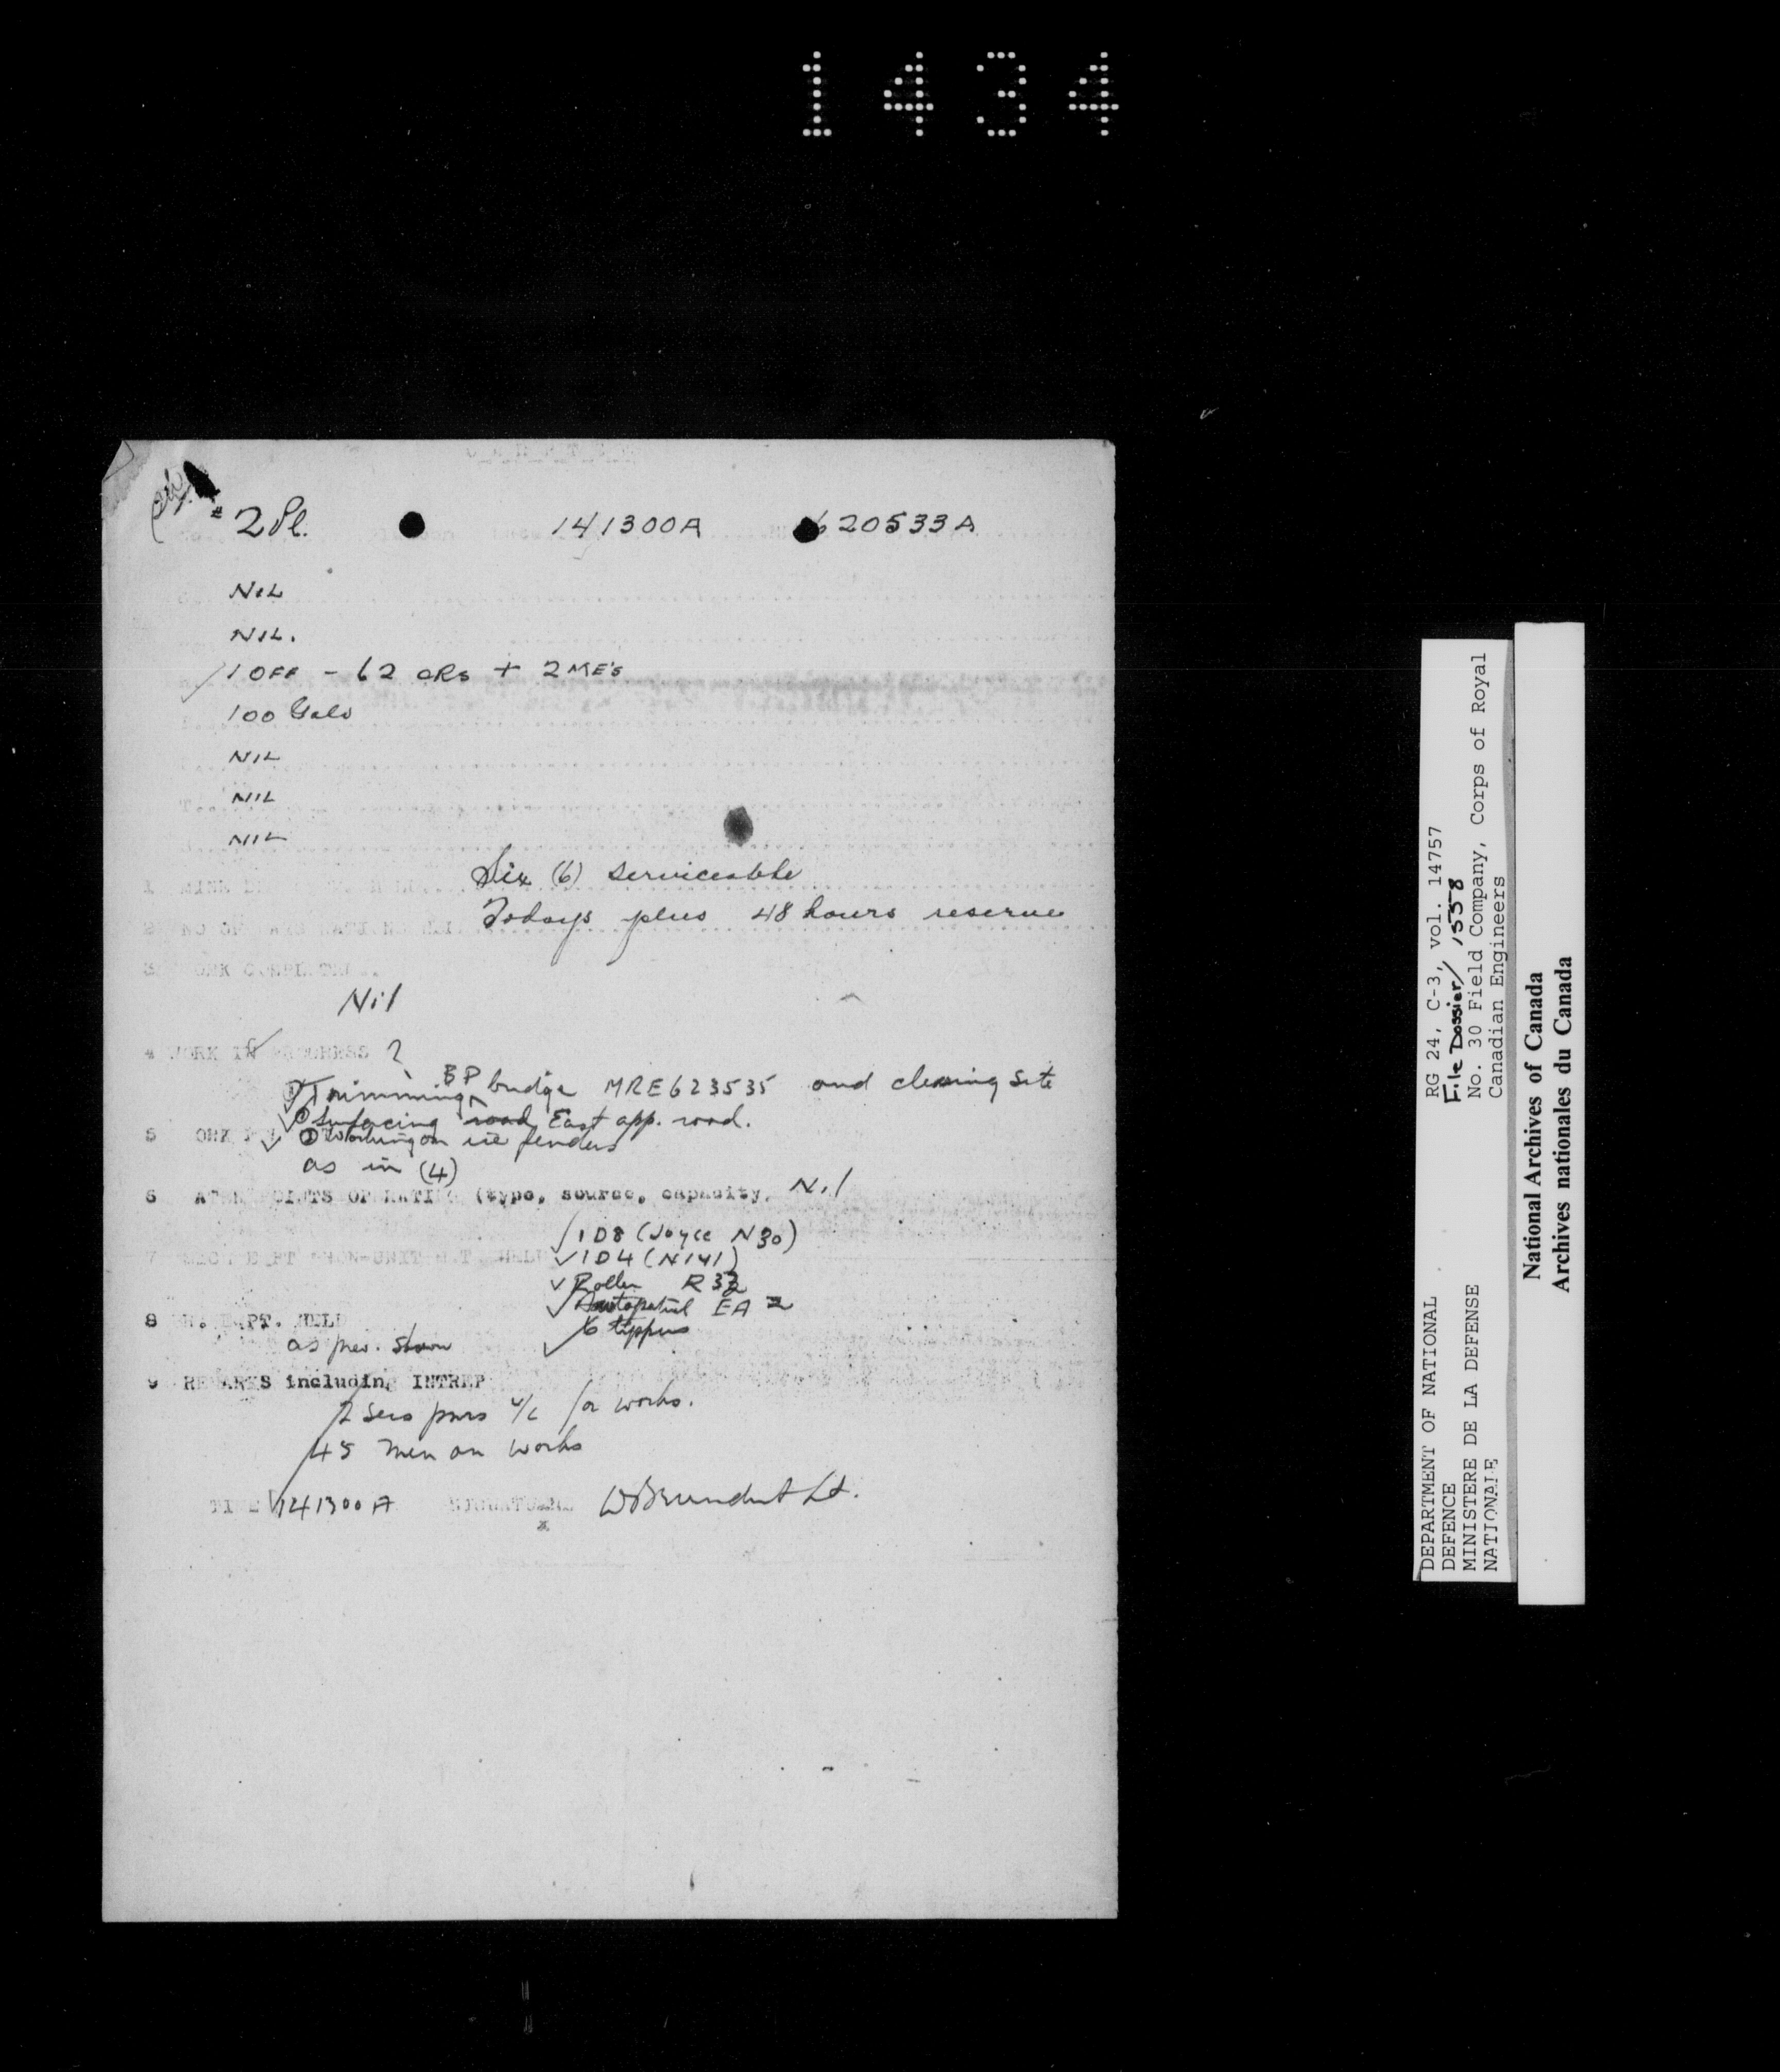 1434
# 2 Pl. 141300A 620533A
NIL
NIL.
1 OFF - 62 ORs + 2 ME's
100 Gals
NIL
NIL
NIL
1 Six (6) serviceable
2 Todays plus 48 hours reserve
3
Nil
4 WORK IN PROGRESS ?
① Trimming BP bridge MR E623535 and cleaning site
② Surfacing road East app. road.
5 ③ Working on ice fenders
as in (4)
6 (type, source, capacity, Nil
1 D8 (Joyce N30)
7 1 D4 (N141)
Roller R32
Autopatrol EA 2
8 6 tippers
as prev. shown
9 REMARKS including INTREP
for works.
45 men on works
TIME 141300A SIGNATURE Lt.
RG 24, C-3, vol. 14757
File Dossier/ 1558
No. 30 Field Company, Corps of Royal
Canadian Engineers
DEPARTMENT OF NATIONAL
DEFENCE
MINISTERE DE LA DEFENSE
NATIONALE
National Archives of Canada
Archives nationales du Canada